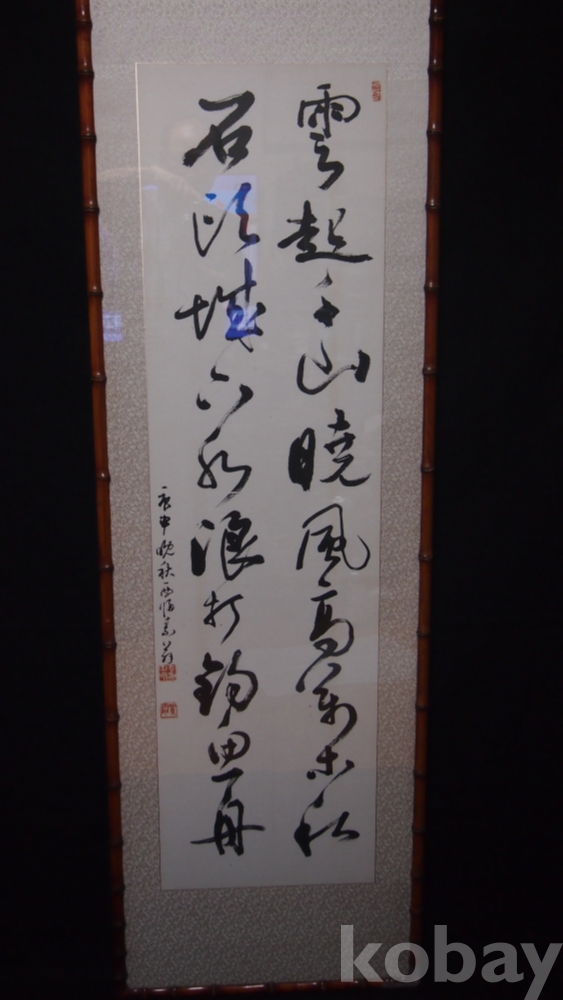 雲起千山曉風高萬木秋
石頭城下水浪打釣魚舟
庚申晚秋
kobay